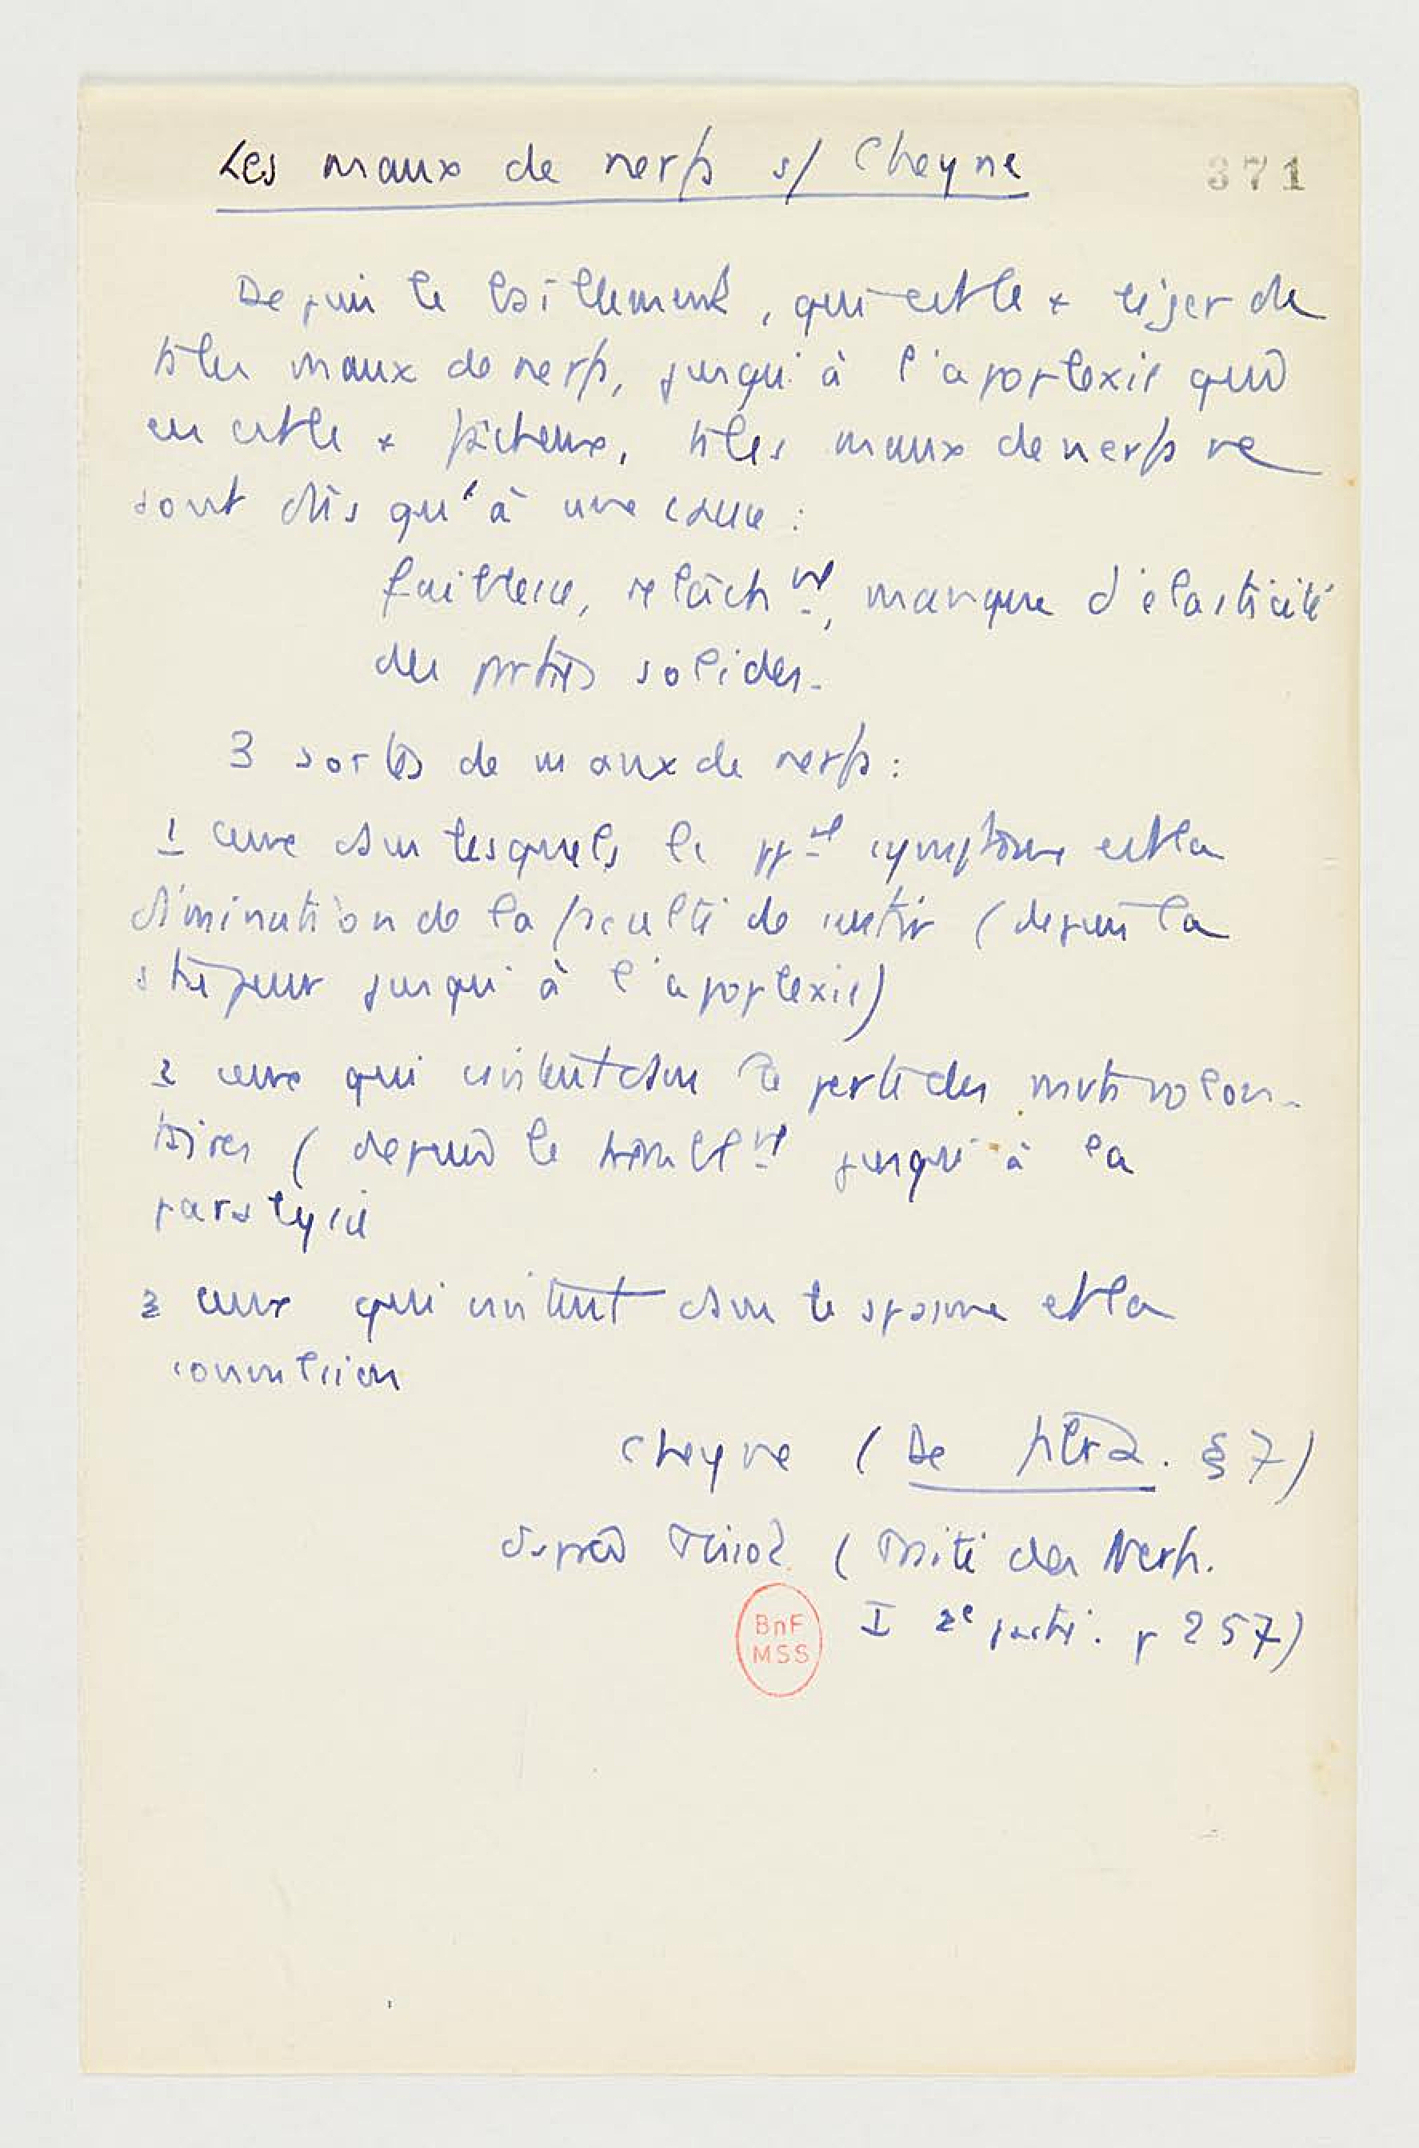 Les maux de nerfs s/ Cheyne
371
Depuis le bâillement, qui est le + léger de
ts les maux de nerfs, jusqu'à l'apoplexie qui
en est le + fâcheux, ts les maux de nerfs ne
sont dûs qu'à une cause :
faiblesse, relâchnt, manque d'élasticité
des parties solides.
3 sortes de maux de nerfs :
1 ceux dans lesquels le ppal symptôme est la
diminution de la faculté de sentir (depuis la
stupeur jusqu'à l'apoplexie)
2 ceux qui consistent dans la perte des mvts volon-
taires (depuis le tremblnt jusqu'à la
paralysie
3 ceux qui consistent dans le spasme et la
convulsion
Cheyne (De fibra. § 7)
d'après Tissot. (Traité des Nerfs.
I 2e partie. p 257)
BnF
MSS